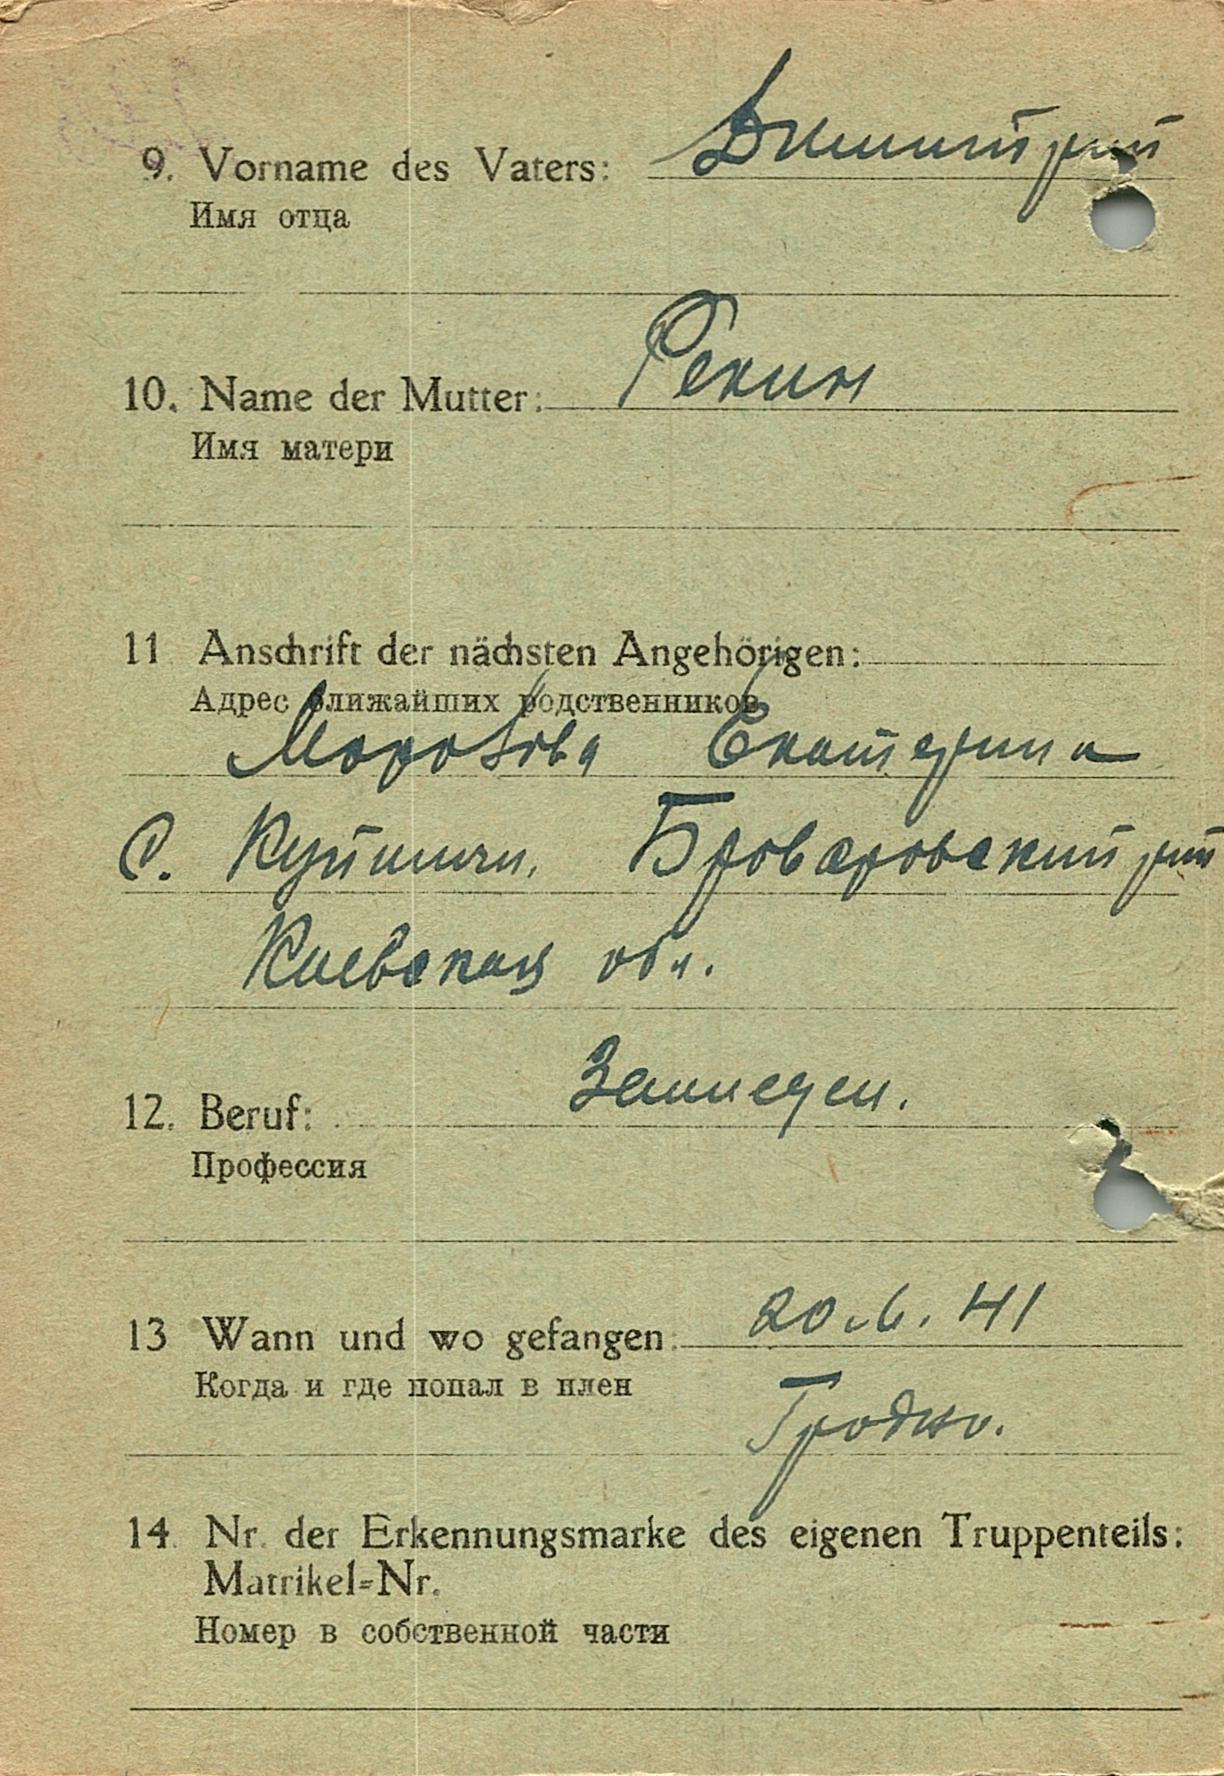 9. Vorname des Vaters: Димитрий
Имя отца
10. Name der Mutter: Рекин
Имя матери
11 Anschrift der nächsten Angehörigen:
Адрес ближайших родственников
Морозова Екатерина
с. Броваровский
Киевская обл.
12. Beruf: Землеуст.
Профессия
13 Wann und wo gefangen: 20.6.41
Когда и где попал в плен
Гродно.
14. Nr. der Erkennungsmarke des eigenen Truppenteils:
Matrikel-Nr.
Номер в собственной части